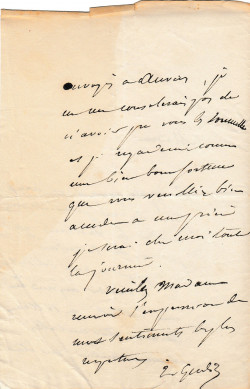 envoyés à Anvers, je
ne me consolerais pas de
n'avoir pu vous les
et je regarderai comme
une bien bonne fortune
que vous vouliez bien
accéder à ma prière
je serai chez moi toute
la journée.
Veuillez Madame
recevoir l'expression de
mes sentiments les plus